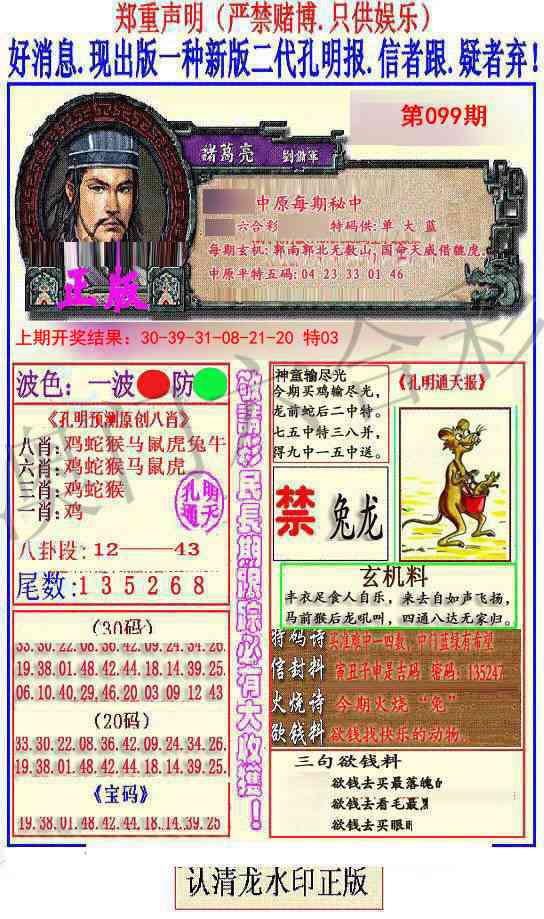 郑重声明（严禁赌博.只供娱乐）
好消息.现出版一种新版二代孔明报.信者跟.疑者弃！
第099期
諸葛亮 劉備軍
中原每期秘中
六合彩 特码供:单 大 蓝
每期玄机:郭南郭北无数山,国命天威借魏虎.
中原平特五码:04 23 33 01 46
正版
上期开奖结果：30-39-31-08-21-20 特03
波色：一波 防
《孔明预测原创八肖》
八肖:鸡蛇猴马鼠虎兔牛
六肖:鸡蛇猴马鼠虎
三肖:鸡蛇猴
一肖:鸡
孔明
通天
八卦段:12——43
尾数:135268
(30码)
33.30.22.08.36.42.09.24.34.26
19.38.01.48.42.44.18.14.39.25
06.10.40.29.46.20 03 09 12 43
(20码)
33.30.22.08.36.42.09.24.34.26.
19.38.01.48.42.44.18.14.39.25.
《宝码》
19.38.01.48.42.44.18.14.39.25
敬請彩民長期跟踪必有大收獲！
神童输尽光
今期买鸡输尽光，
龙前蛇后二中特。
七五中特三八并，
得九中一五中送。
禁 兔龙
《孔明通天报》
玄机料
丰衣足食人自乐，来去自如声飞扬，
马前猴后龙吼叫，四通八达无家归。
特码诗 买准难中一四数，中门蓝绿有希望
信封料 寅丑子申是吉码 密码:135247
火烧诗 今期火烧“兔”
欲钱料 欲钱找快乐的动物.
三句欲钱料
欲钱去买最落魄
欲钱去看毛最
欲钱去买眼
认清龙水印正版